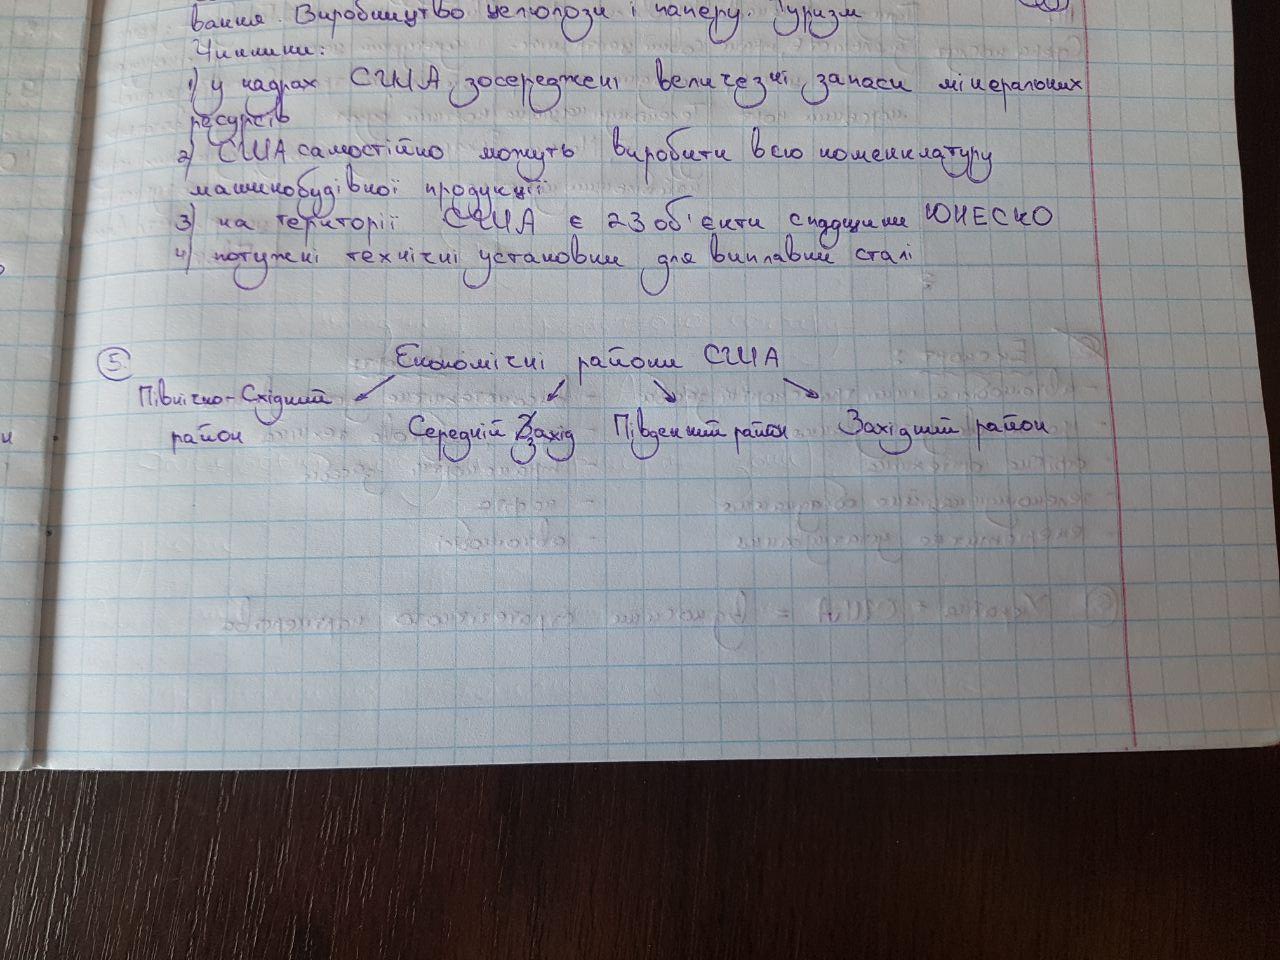 вання. Виробництво целюлози і паперу. Туризм
Чинники:
1) у надрах США зосереджені величезні запаси мінеральних
ресурсів
2) США самостійно можуть виробити всю номенклатуру
машинобудівної продукції
3) на території США є 23 об'єкти спадщини ЮНЕСКО
4) потужні технічні установки для виплавки сталі
5. Економічні райони США
Північно-Східний
район
Середній Захід Південний район Західний район